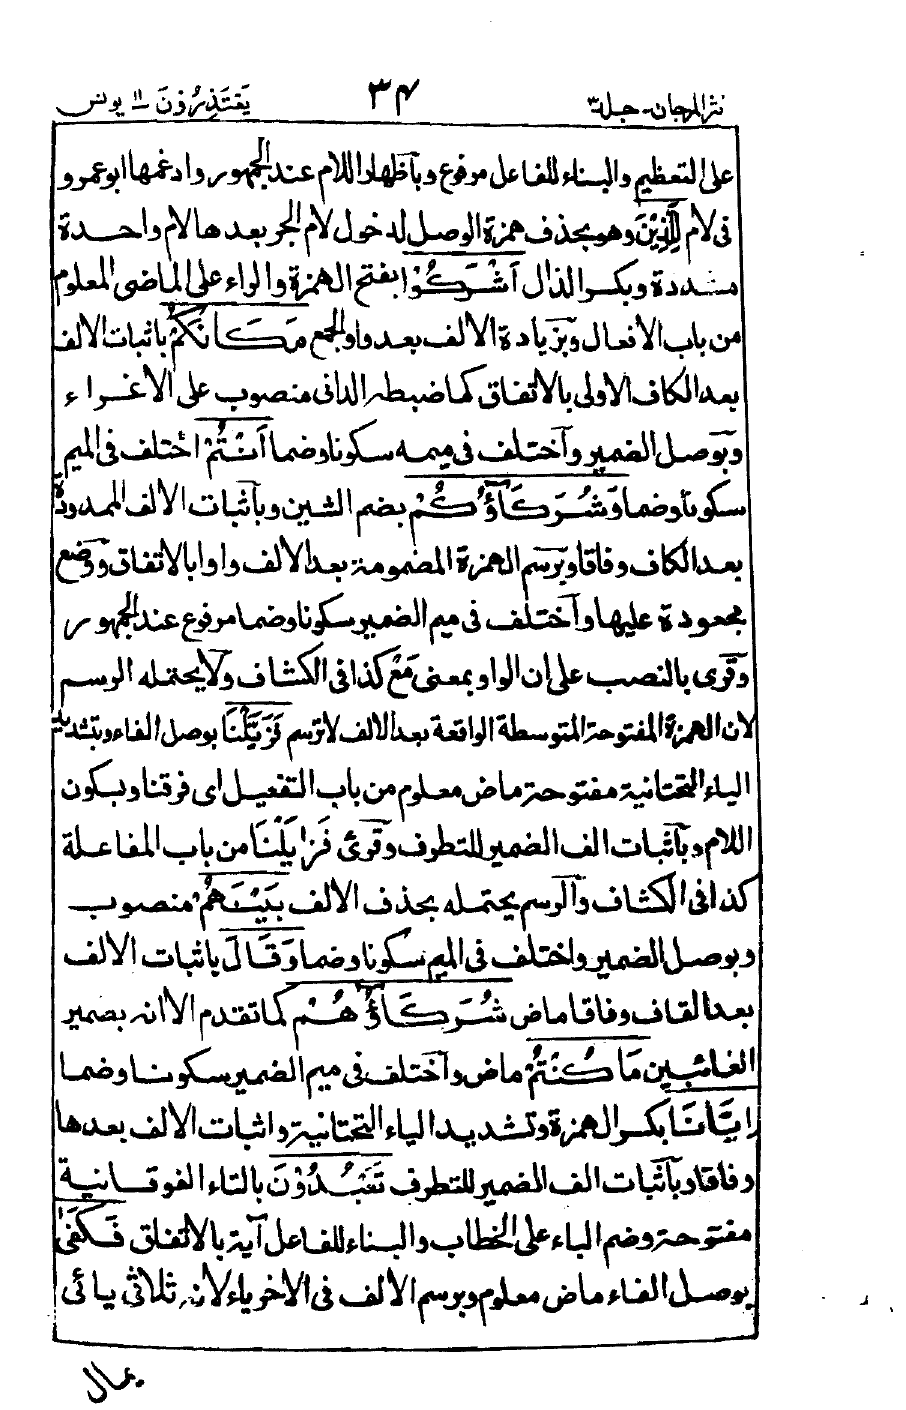 نثر المرجان - جلد ٣ ٣٤ يَعْتَذِرُوْنَ ١١ يونس
على التعظيم والبناء للفاعل مرفوع وبآظهار اللام عند الجمهور وادغمها ابو عمرو
فى لام لِلَّذِيْنَ وهو بحذف همزة الوصل لدخول لام الجر بعدها لام واحدة
مشددة وبكسر الذال اَشْرَكُوْا بفتح الهمزة والراء على الماضى المعلوم
من باب الافعال وبزيادة الالف بعد واو الجمع مَكَانَكُمْ باثبات الالف
بعد الكاف الاولى بالاتفاق كما ضبطه الدانى منصوب على الاغراء
وبوصل الضمير وآختلف فى ميمه سكونا وضما اَنْتُمْ اختلف فى الميم
سكونا وضما وَشُرَكَآؤُكُمْ بضم الشين وبآثبات الالف الممدودة
بعد الكاف وفاقا وبرسم الهمزة المضمومة بعد الالف واوا بالاتفاق ووضع
مجعودة عليها وآختلف فى ميم الضمير سكونا وضما مرفوع عند الجمهور
وقرى بالنصب على ان الواو بمعنى مَعْ كذا فى الكشاف ولا يحتمله الرسم
لان الهمزة المفتوحة المتوسطة الواقعة بعد الالف لا ترسم فَزَيَّلْنَا بوصل الفاء وبتشديد
الياء التحتانية مفتوحة ماض معلوم من باب التفعيل اى فرقنا وبسكون
اللام وبآثبات الف الضمير للتطرف وقرئ فَزَايَلْنَا من باب المفاعلة
كذا فى الكشاف والرسم يحتمله بحذف الالف بَيْنَهُمْ منصوب
وبوصل الضمير واختلف فى الميم سكونا وضما وَقَالَ باثبات الالف
بعد القاف وفاقا ماض شُرَكَآؤُهُمْ كما تقدم الا انه بضمير
الغائبين مَا كُنْتُمْ ماض وآختلف فى ميم الضمير سكونا وضما
اِيَّانَا بكسر الهمزة وتشديد الياء التحتانية واثبات الالف بعدها
وفاقا وبآثبات الف الضمير للتطرف تَعْبُدُوْنَ بالتاء الفوقانية
مفتوحة وضم الباء على الخطاب والبناء للفاعل آية بالاتفاق فَكَفٰى
بوصل الفاء ماض معلوم وبرسم الالف فى الاخر ياء لانه ثلاثى يائى
يمال